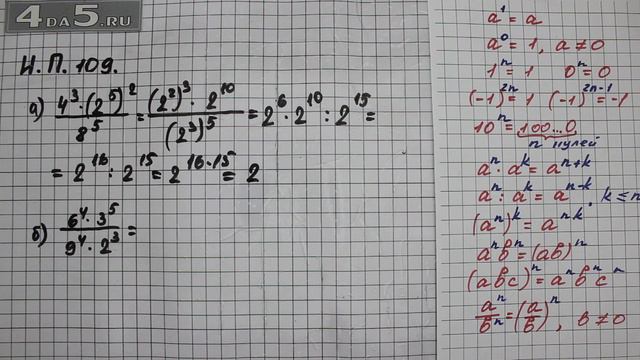 4DA5.RU
И.П. 109.
а) 4³·(2⁵)²/8⁵ = (2²)³·2¹⁰/(2³)⁵ = 2⁶·2¹⁰:2¹⁵ =
= 2¹⁶:2¹⁵ = 2¹⁶⁻¹⁵ = 2
б) 6⁴·3⁵/9⁴·2³ =
a¹ = a
a⁰ = 1, a ≠ 0
1ⁿ = 1 0ⁿ = 0
(-1)²ⁿ = 1 (-1)²ⁿ⁻¹ = -1
10ⁿ = 100...0
n нулей
aⁿ·aᵏ = aⁿ⁺ᵏ
aⁿ:aᵏ = aⁿ⁻ᵏ, k ≤ n
(aⁿ)ᵏ = aⁿᵏ
aⁿbⁿ = (ab)ⁿ
(abc)ⁿ = aⁿbⁿcⁿ
aⁿ/bⁿ = (a/b)ⁿ, b ≠ 0